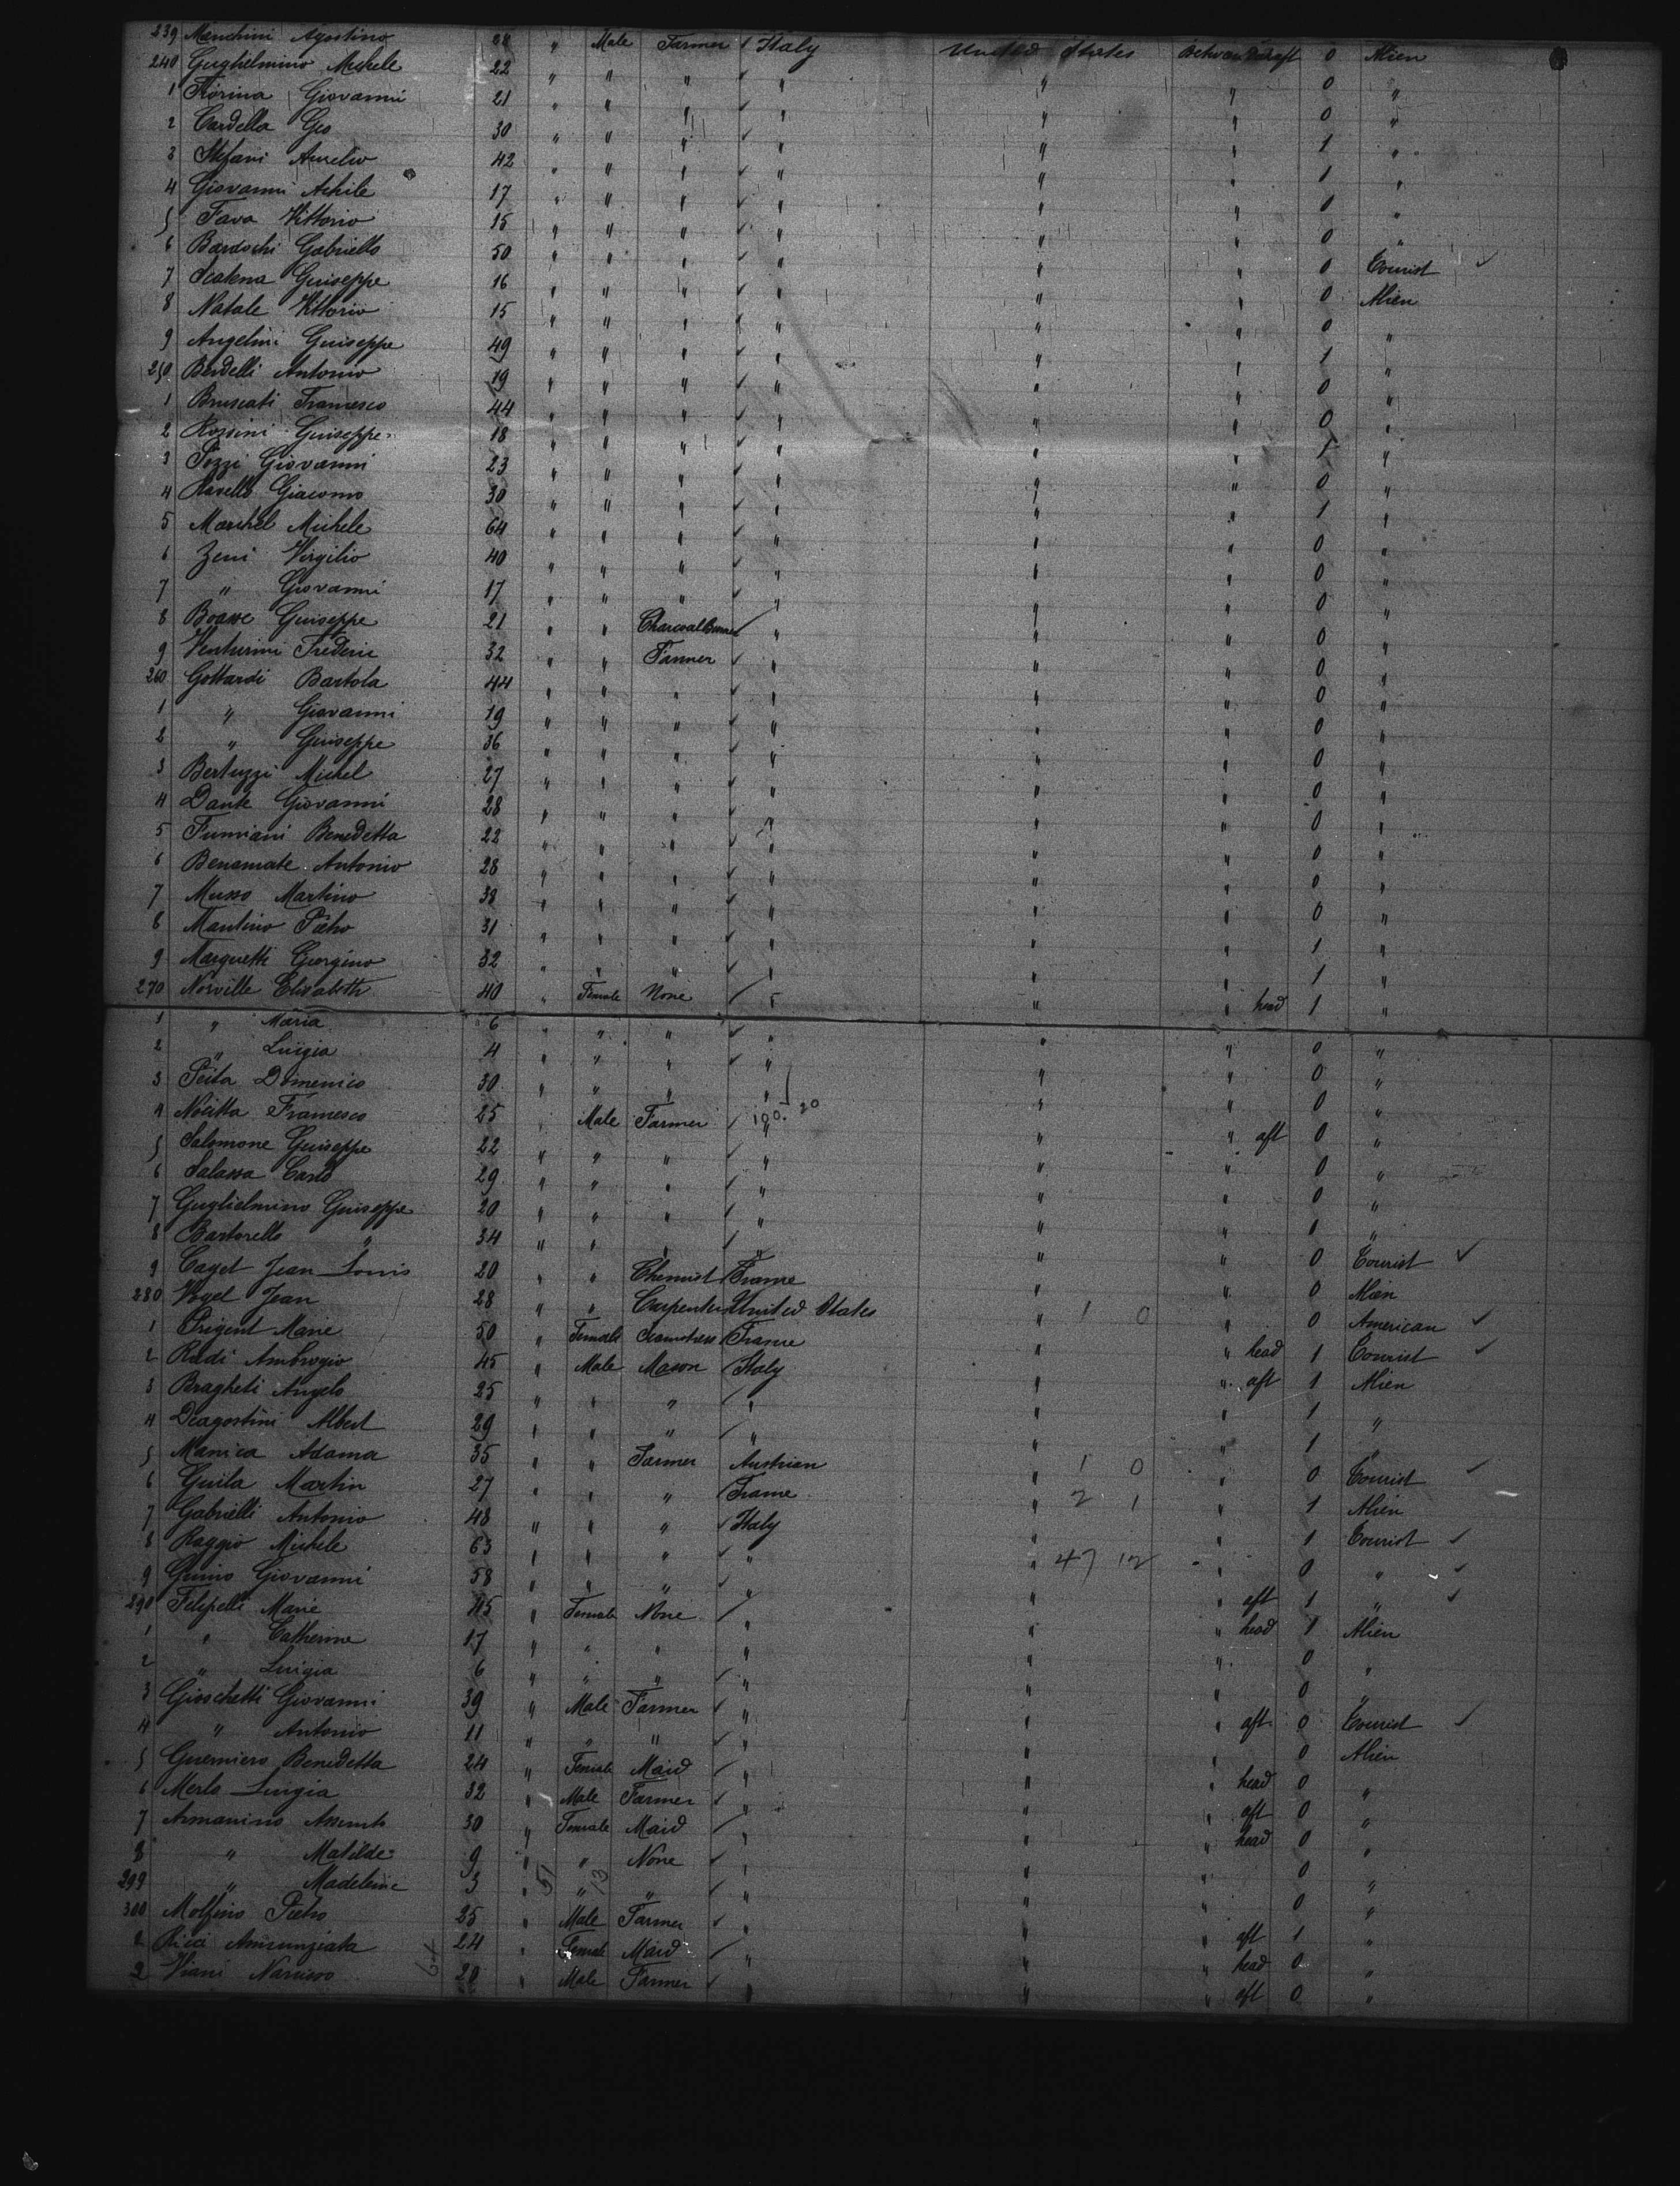 239 Menchini Agostino 28 " Male Farmer / Italy United States Betw dk aft 0 Alien
240 Gughelmino Michele 22 " " " " " " 0 "
1 Fiorina Giovanni 21 " " " " " " 0 "
2 Cardella Geo 30 " " " " " " 1 "
3 Stefani Aurelio 42 " " " " " " 1 "
4 Giovanni Achile 17 " " " " " " 0 "
5 Fava Vittorio 15 " " " " " " 0 "
6 Bardochi Gabriello 50 " " " " " " 0 Tourist
7 Scatena Guiseppe 16 " " " " " " 0 Alien
8 Natale Vittorio 15 " " " " " " 0 "
9 Angelini Guiseppe 49 " " " " " " 1 "
250 Berdelli Antonio 19 " " " " " " 0 "
1 Bruscati Francesco 44 " " " " " " 0 "
2 Rossini Guiseppe 18 " " " " " " 1 "
3 Pozzi Giovanni 23 " " " " " " 0 "
4 Ravello Giacomo 30 " " " " " " 1 "
5 Marchel Michele 64 " " " " " " 0 "
6 Zeni Virgilio 40 " " " " " " 0 "
7 " Giovanni 17 " " " " " " 0 "
8 Boasse Guiseppe 21 " " Charcoal Burner " " " 0 "
9 Venturini Frederic 32 " " Farmer " " " 0 "
260 Gottardi Bartola 44 " " " " " " 0 "
1 " Giovanni 19 " " " " " " 0 "
2 " Guiseppe 36 " " " " " " 0 "
3 Bertuzzi Michel 27 " " " " " " 0 "
4 Dante Giovanni 28 " " " " " " 0 "
5 Fumiani Benedetta 22 " " " " " " 0 "
6 Benamate Antonio 28 " " " " " " 0 "
7 Musso Martino 38 " " " " " " 0 "
8 Mantino Pietro 31 " " " " " " 1 "
9 Marquetti Giorgino 32 " " " " " " 1 "
270 Norville Elisabeth 40 " Female None " " " head 1 "
1 " Maria 6 " " " " " " 0 "
2 " Luigia 4 " " " " " " 0 "
3 Peita Domenico 30 " " " " " " 0 "
4 Nocitta Francesco 25 " Male Farmer " " " aft 0 "
5 Salomone Guiseppe 22 " " " " " " 0 "
6 Salassa Carlo 29 " " " " " " 0 "
7 Guglielmino Guiseppe 20 " " " " " " 1 "
8 Bartorello " 34 " " " " " " 0 Tourist
9 Caget Jean Louis 20 " " Chemist France " " 0 Alien
280 Vogel Jean 28 " " Carpenter United States " 1 0 " 0 American
1 Prigent Marie 50 " Female Seamstress France " " head 1 Tourist
2 Radi Ambrogio 45 " Male Mason Italy " " aft 1 Alien
3 Bragheti Angelo 25 " " " " " " 1 "
4 Deagostini Albert 29 " " " " " " 1 "
5 Manica Adama 35 " " Farmer Austrian " 1 0 " 0 Tourist
6 Guila Martin 27 " " " France " 2 1 " 1 Alien
7 Gabrielli Antonio 48 " " " Italy " " 1 Tourist
8 Raggio Michele 63 " " " " " 47 12 " 0 "
9 Guino Giovanni 58 " " " " " " aft 1 "
290 Filipelli Marie 45 " Female None " " " head 1 Alien
1 " Catherine 17 " " " " " " 0 "
2 " Luigia 6 " " " " " " 0 "
3 Gioschetti Giovanni 39 " Male Farmer " " " aft 0 Tourist
4 " Antonio 11 " " " " " " 0 Alien
5 Guerniero Benedetta 24 " Female Maid " " " head 0 "
6 Merlo Luigia 32 " Male Farmer " " " aft 0 "
7 Armanino Assunto 30 " Female Maid " " " head 0 "
8 " Matilde 9 " " None " " " 0 "
299 " Madeleine 3 " 51 " 13 " " " " 0 "
300 Molfino Pietro 25 " Male Farmer " " " aft 1 "
2 Ricci Annunziata 24 " Female Maid " " " head 0 "
2 Viani Narcisso 64 20 " Male Farmer " " " aft 0 "